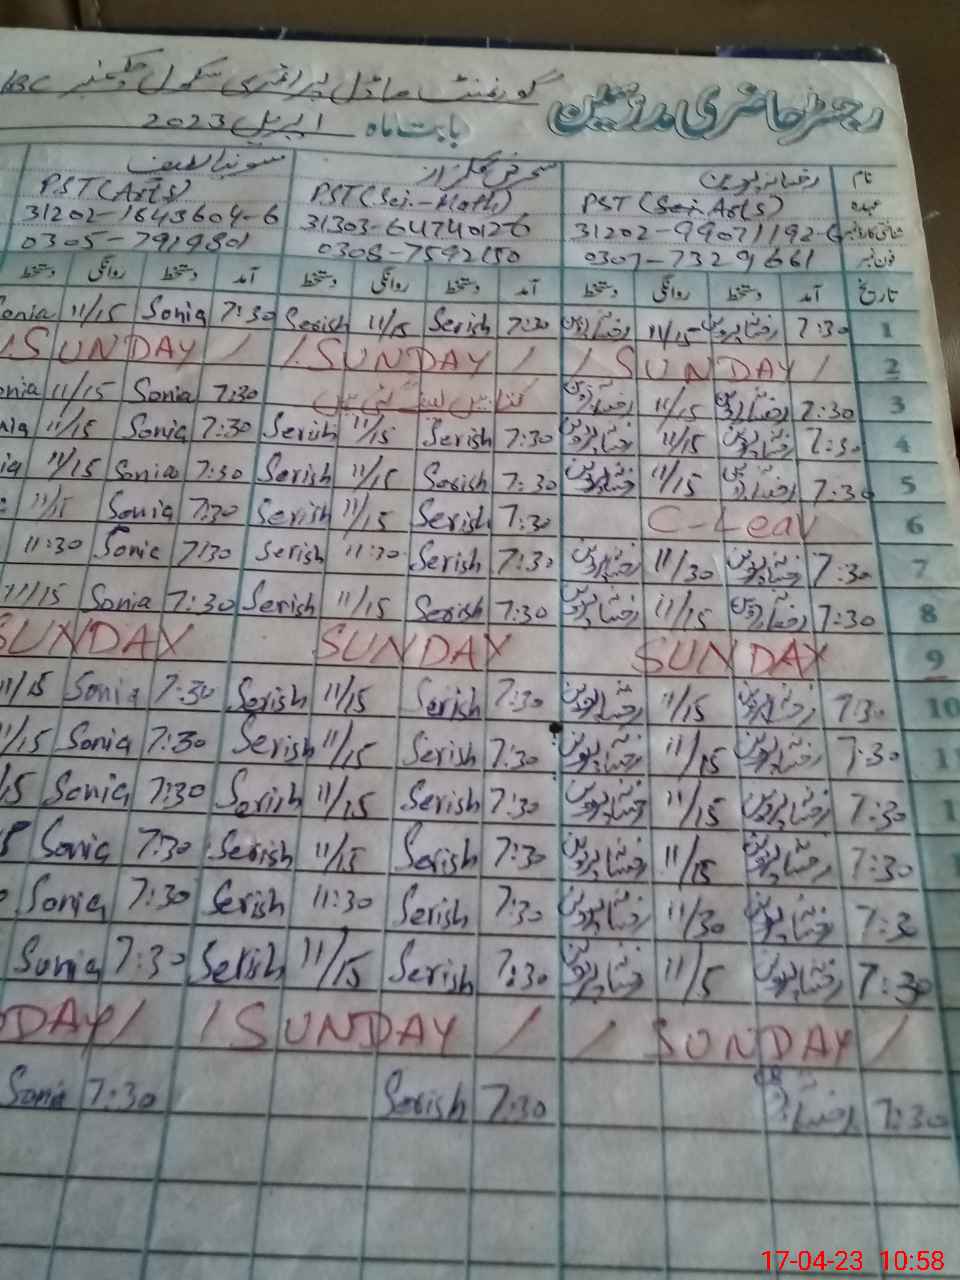 رجسٹر حاضری مدرسین گورنمنٹ ماڈل پرائمری سکول چک نمبر
بابت ماہ اپریل 2023
نام رخسانہ پروین سحرش گلزار سونیا لطیف
عہدہ PST (Sci. Arts) PST (Sci.-Math) PST (Arts)
شناختی کارڈ نمبر 31202-9907192-6 31303-6474012-6 31202-1643604-6
فون نمبر 0307-7329661 0308-7592150 0305-7919801
تاریخ آمد دستخط روانگی دستخط آمد دستخط روانگی دستخط آمد دستخط روانگی
1 7:30 رخسانہ پروین 11/15 رخسانہ پروین 7:30 Serish 11/15 Serish 7:30 Sonia 11/15 Sonia
2 / SUNDAY / / SUNDAY / / SUNDAY /
3 7:30 رخسانہ پروین 11/15 رخسانہ پروین کتابیں لینے گئی ہیں 7:30 Sonia 11/15
4 7:30 رخسانہ پروین 11/15 رخسانہ پروین 7:30 Serish 11/15 Serish 7:30 Sonia 11/15
5 7:30 رخسانہ پروین 11/15 رخسانہ پروین 7:30 Serish 11/15 Serish 7:30 Sonia 11/15
6 C-Leav 7:30 Serish 11/15 Serish 7:30 Sonia 11/15
7 7:30 رخسانہ پروین 11/30 رخسانہ پروین 7:30 Serish 11:30 Serish 7:30 Sonia 11:30
8 7:30 رخسانہ پروین 11/15 رخسانہ پروین 7:30 Serish 11/15 Serish 7:30 Sonia 11/15
9 SUNDAY SUNDAY SUNDAY
10 7:30 رخسانہ پروین 11/15 رخسانہ پروین 7:30 Serish 11/15 Serish 7:30 Sonia 11/15
7:30 رخسانہ پروین 11/15 رخسانہ پروین 7:30 Serish 11/15 Serish 7:30 Sonia 11/15
7:30 رخسانہ پروین 11/15 رخسانہ پروین 7:30 Serish 11/15 Serish 7:30 Sonia
7:30 رخسانہ پروین 11/15 رخسانہ پروین 7:30 Serish 11/15 Serish 7:30 Sonia
7:30 رخسانہ پروین 11/30 رخسانہ پروین 7:30 Serish 11:30 Serish 7:30 Sonia
7:30 رخسانہ پروین 11/5 رخسانہ پروین 7:30 Serish 11/15 Serish 7:30 Sonia
/ SUNDAY / / SUNDAY / DAY /
7:30 رخسانہ 7:30 Serish 7:30 Sonia
17-04-23 10:58